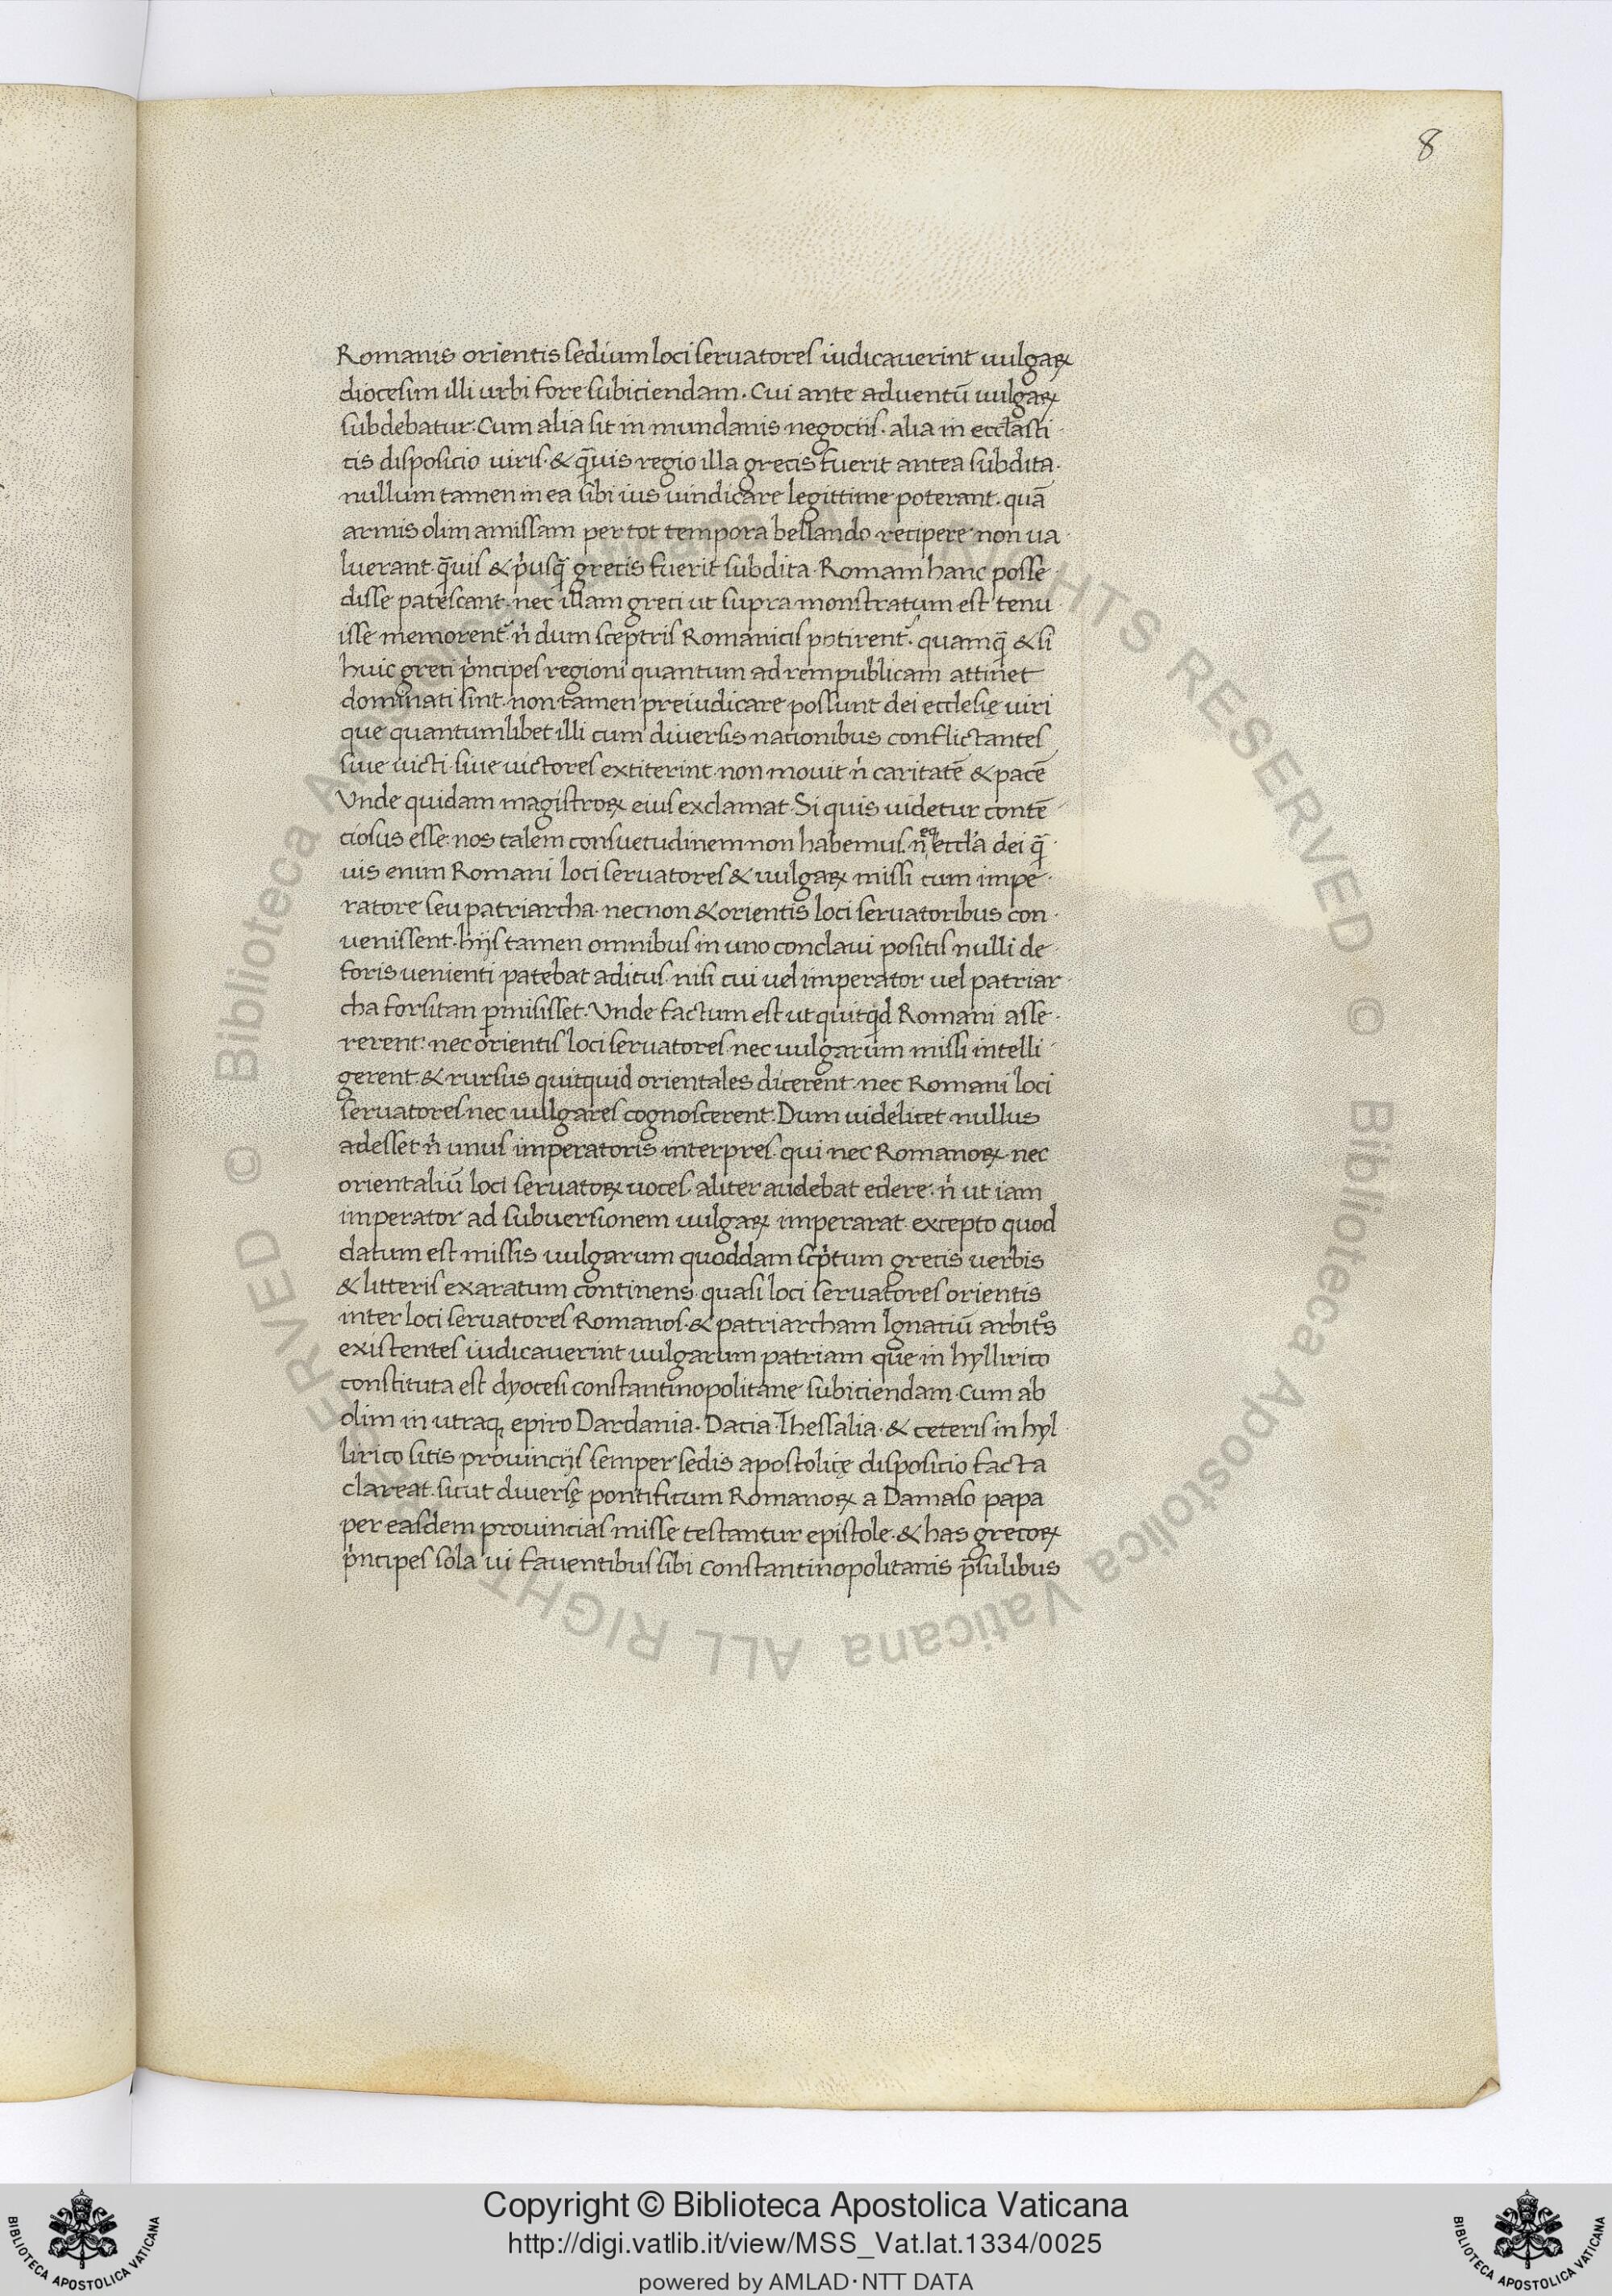 8
Romanis orientis sedium loci seruatores iudicauerint uulgaꝝ
diocesim illi urbi fore subiciendam. Cui ante aduentū uulgaꝝ
subdebatur. Cum alia sit in mundanis negociis. alia in eccl̄asti
cis disposicio uiris. & q̄uis regio illa grecis fuerit antea subdita.
nullum tamen in ea sibi ius uindicare legittime poterant. quā
armis olim amissam per tot tempora bellando recipere non ua
luerant. q̄uis & p̾usq̄ grecis fuerit subdita. Romam hanc posse
disse patescant. nec illam greci ut supra monstratum est tenu
isse memorent᷑. n̾ dum sceptris Romanicis potirent᷑. quamq̄ & si
huic greci p̾ncipes regioni quantum ad rempublicam attinet
dominati sint. non tamen preiudicare possunt dei ecclesię uiri
que quantumlibet illi cum diuersis nationibus conflictantes
siue uicti siue uictores extiterint. non mouit n̾ caritatē & pacē
Vnde quidam magistroꝝ eius exclamat. Si quis uidetur contē
ciosus esse. nos talem consuetudinem non habemus. n̄ eq̄ eccl̄a dei q̄
uis enim Romani loci seruatores & uulgaꝝ missi cum impe
ratore seu patriarcha. necnon & orientis loci seruatoribus con
uenissent. hijs tamen omnibus in uno conclaui positis nulli de
foris uenienti patebat aditus. nisi cui uel imperator uel patriar
cha forsitan ꝑmisisset. Vnde factum est ut quitq̾d Romani asse
rerent. nec orientis loci seruatores nec uulgarum missi intelli
gerent. & rursus quitquid orientales dicerent. nec Romani loci
seruatores nec uulgares cognoscerent. Dum uidelicet nullus
adesset n̾ unus imperatoris interpres. qui nec Romanoꝝ nec
orientaliū loci seruatoꝝ uoces. aliter audebat edere. n̾ ut iam
imperator ad subuersionem uulgaꝝ imperarat. excepto quod
datum est missis uulgarum quoddam scp̾tum grecis uerbis
& litteris exaratum continens. quasi loci seruatores orientis
inter loci seruatores Romanos. & patriarcham Ignatiū arbitͦs
existentes iudicauerint uulgarum patriam que in hyllirico
constituta est dyocesi constantinopolitane subiciendam. Cum ab
olim in utraqꝫ epiro Dardania. Dacia Thessalia. & ceteris in hyl
lirico sitis prouincijs semper sedis apostolicę disposicio facta
clareat. sicut diuersę pontificum Romanoꝝ a Damaso papa
per easdem prouincias misse testantur epistole. & has grecoꝝ
p̾ncipes sola ui fauentibus sibi constantinopolitanis p̄sulibus
© Biblioteca Apostolica Vaticana ALL RIGHTS RESERVED © Biblioteca Apostolica Vaticana ALL RIGHTS RESERVED
BIBLIOTECA APOSTOLICA VATICANA
Copyright © Biblioteca Apostolica Vaticana
http://digi.vatlib.it/view/MSS_Vat.lat.1334/0025
powered by AMLAD·NTT DATA
BIBLIOTECA APOSTOLICA VATICANA